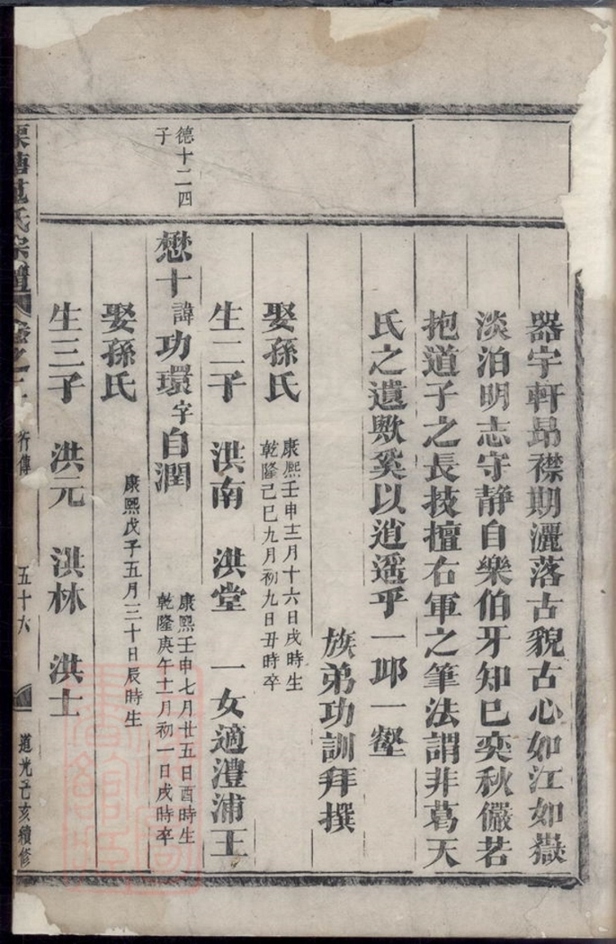 器宇軒昂襟期灑落古貌古心如江如嶽
淡泊明志守静自樂伯牙知己奕秋儼若
抱道子之長技擅右軍之筆法謂非葛天
氏之遺歟奚以逍遥乎一邱一壑
族弟功訓拜撰
娶孫氏
康熙壬申十二月十六日戌時生
乾隆己巳九月初九日丑時卒
生二子 洪南 洪堂 一女適澧浦王
德十二四
子
懋十諱功環字自潤
康熙壬申七月廿五日酉時生
乾隆庚午十一月初一日戌時卒
娶孫氏
康熙戊子五月三十日辰時生
生三子 洪元 洪林 洪士
氏宗譜 卷之 行傳 五十六 道光己亥續修